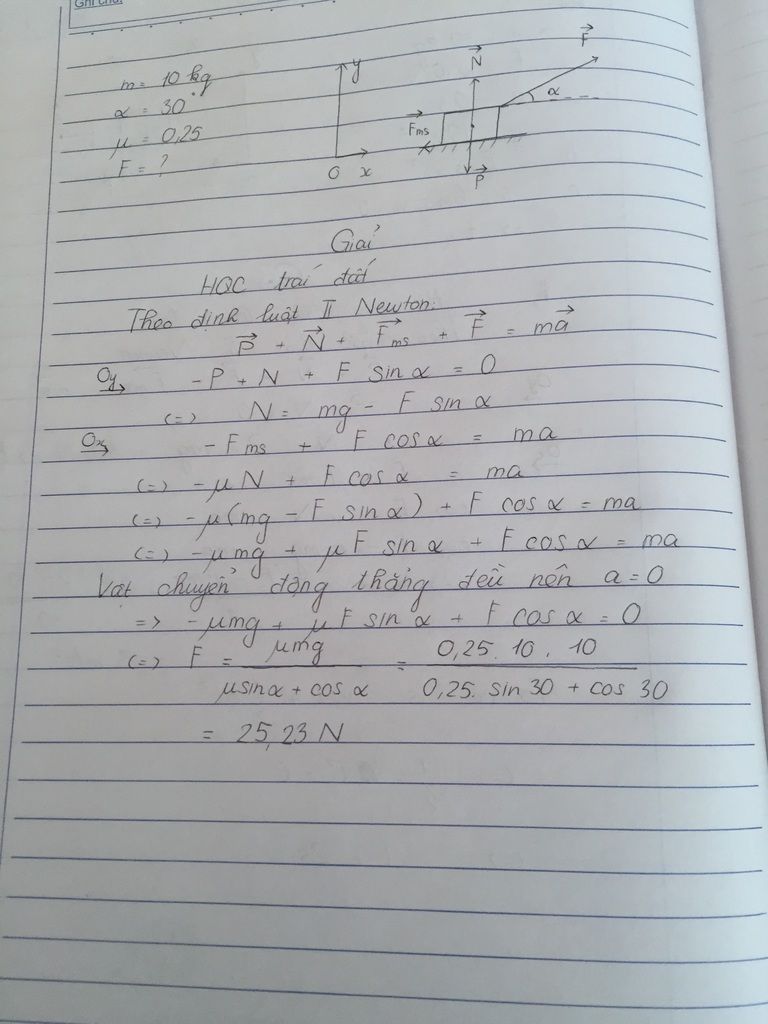 Ghi chú:
m = 10 kg
α = 30°
μ = 0,25
F = ?
y
O x
N⃗
F⃗
α
F⃗ms
P⃗
Giải
HQC trái đất
Theo định luật II Newton:
P⃗ + N⃗ + F⃗ms + F⃗ = ma⃗
Oy -P + N + F sin α = 0
(=) N = mg - F sin α
Ox -Fms + F cos α = ma
(=) -μN + F cos α = ma
(=) -μ(mg - F sin α) + F cos α = ma
(=) -μmg + μF sin α + F cos α = ma
Vật chuyển động thẳng đều nên a = 0
=> -μmg + μF sin α + F cos α = 0
(=) F = μmg / (μsinα + cos α) = 0,25. 10 . 10 / (0,25. sin 30 + cos 30)
= 25,23 N